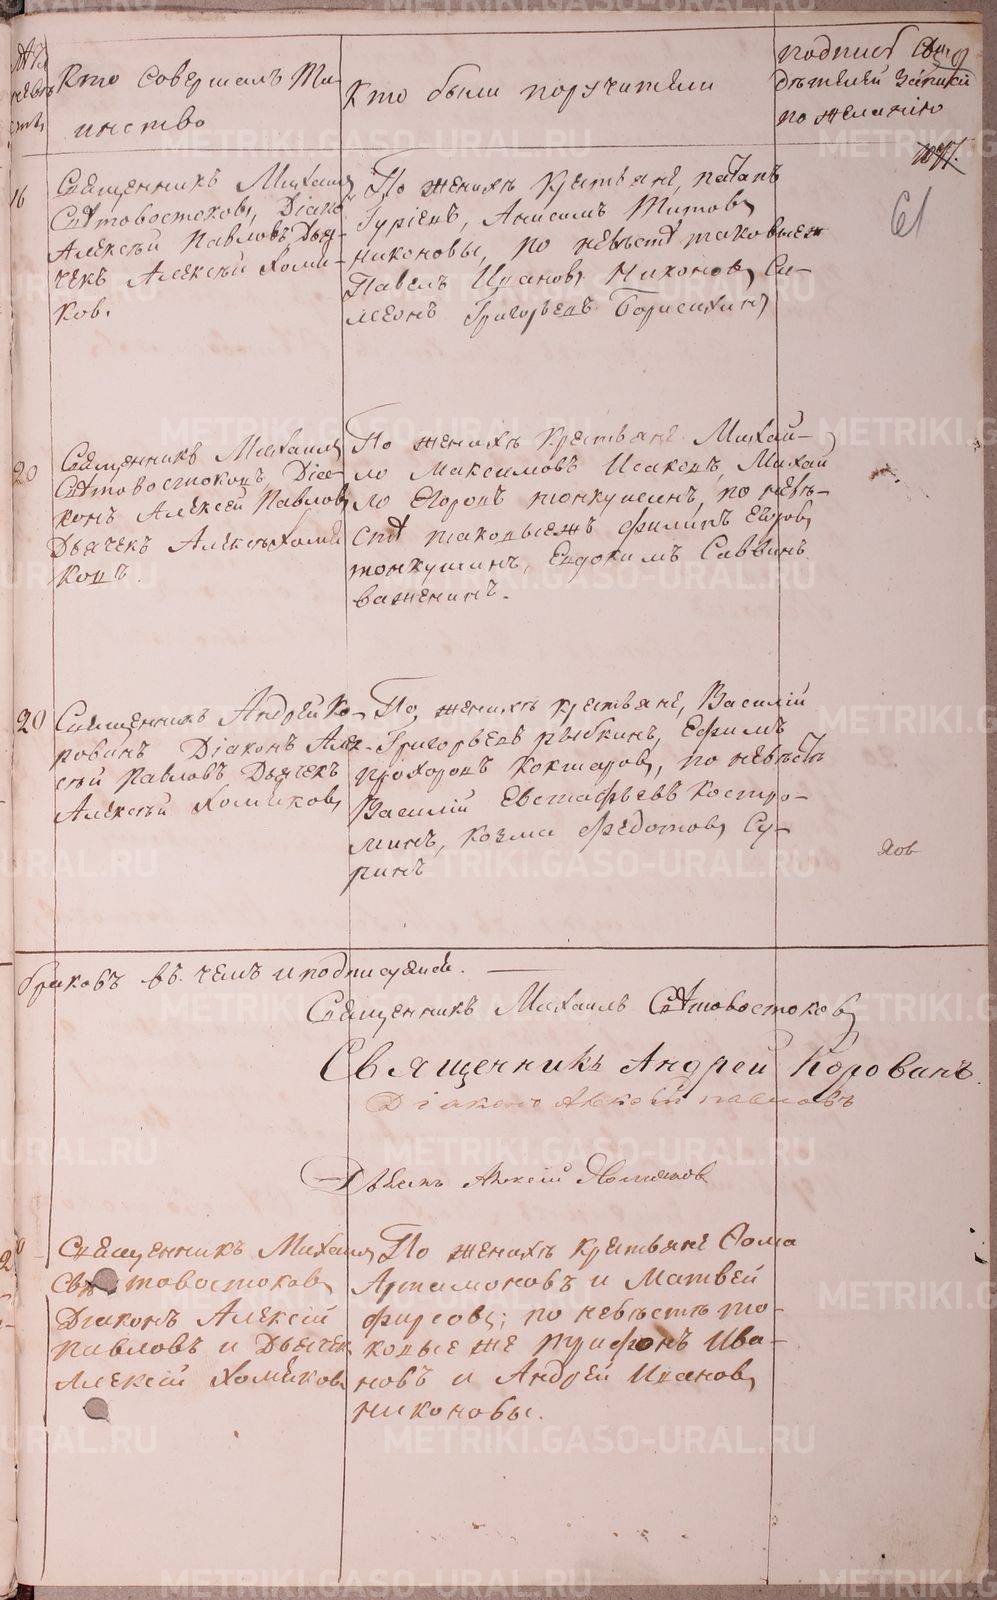 Лѣта
невѣс
ты
Кто совершалъ Та-
инство
Кто были поручители
подписъ сви
дѣтелей записи
по желанію
61
16
Священникъ Михаилъ
Святовостоковъ, Діако
Алексѣй Павловъ Дья-
чекъ Алексѣй Хомя-
ковъ.
По женихѣ крестьяне, патапъ
Гуріевъ, Анисимъ Титовъ
никоновы, по невѣстѣ таковыеж
Павелъ Ивановъ Никоновъ, Си-
меонъ Григорьевъ Борисихинъ
20
Священникъ Михаилъ
Святовостоковъ, Діа-
конъ Алексей Павловъ
Дьячекъ Алексѣй Хомя
ковъ.
По женихѣ крестьяне Михай-
ло Максимовъ Исаковъ, Михай
ло Егоровъ тонкушинъ, по невѣ-
стѣ таковыежъ Филипъ Егоровъ
тонкушинъ, Евдокимъ Саввинъ
важенинъ.
20
Священникъ Андрей Ко-
рованъ Діаконъ Алек-
сѣй Павловъ Дьячекъ
Алексѣй Хомяковъ
По женихѣ крестьяне, Василій
Григорьевъ рыбкинъ, Ефимъ
прохоровъ кокшаровъ, по невѣстѣ
Василій Евстафьевъ костро-
минъ, козма Федотовъ Су-
ринъ
яов
браковъ въ чемъ и подписуемся.
Священникъ Михаилъ Святовостоковъ
Священникъ Андрей Корованъ.
Діаконъ Алексѣй павловъ
Дьячекъ Алексій Хомяковъ
20
Священникъ Михаилъ
Святовостоковъ
Діаконъ Алексій
Павловъ и Дьячек
Алексій Хомяковъ
По женихѣ крестьяне Фома
Артамоновъ и Матвей
Фирсовъ; по невѣстѣ та-
ковые же Трифонъ Ива-
новъ и Андрей Ивановъ
никоновы.
METRIKI.GASO-URAL.RU